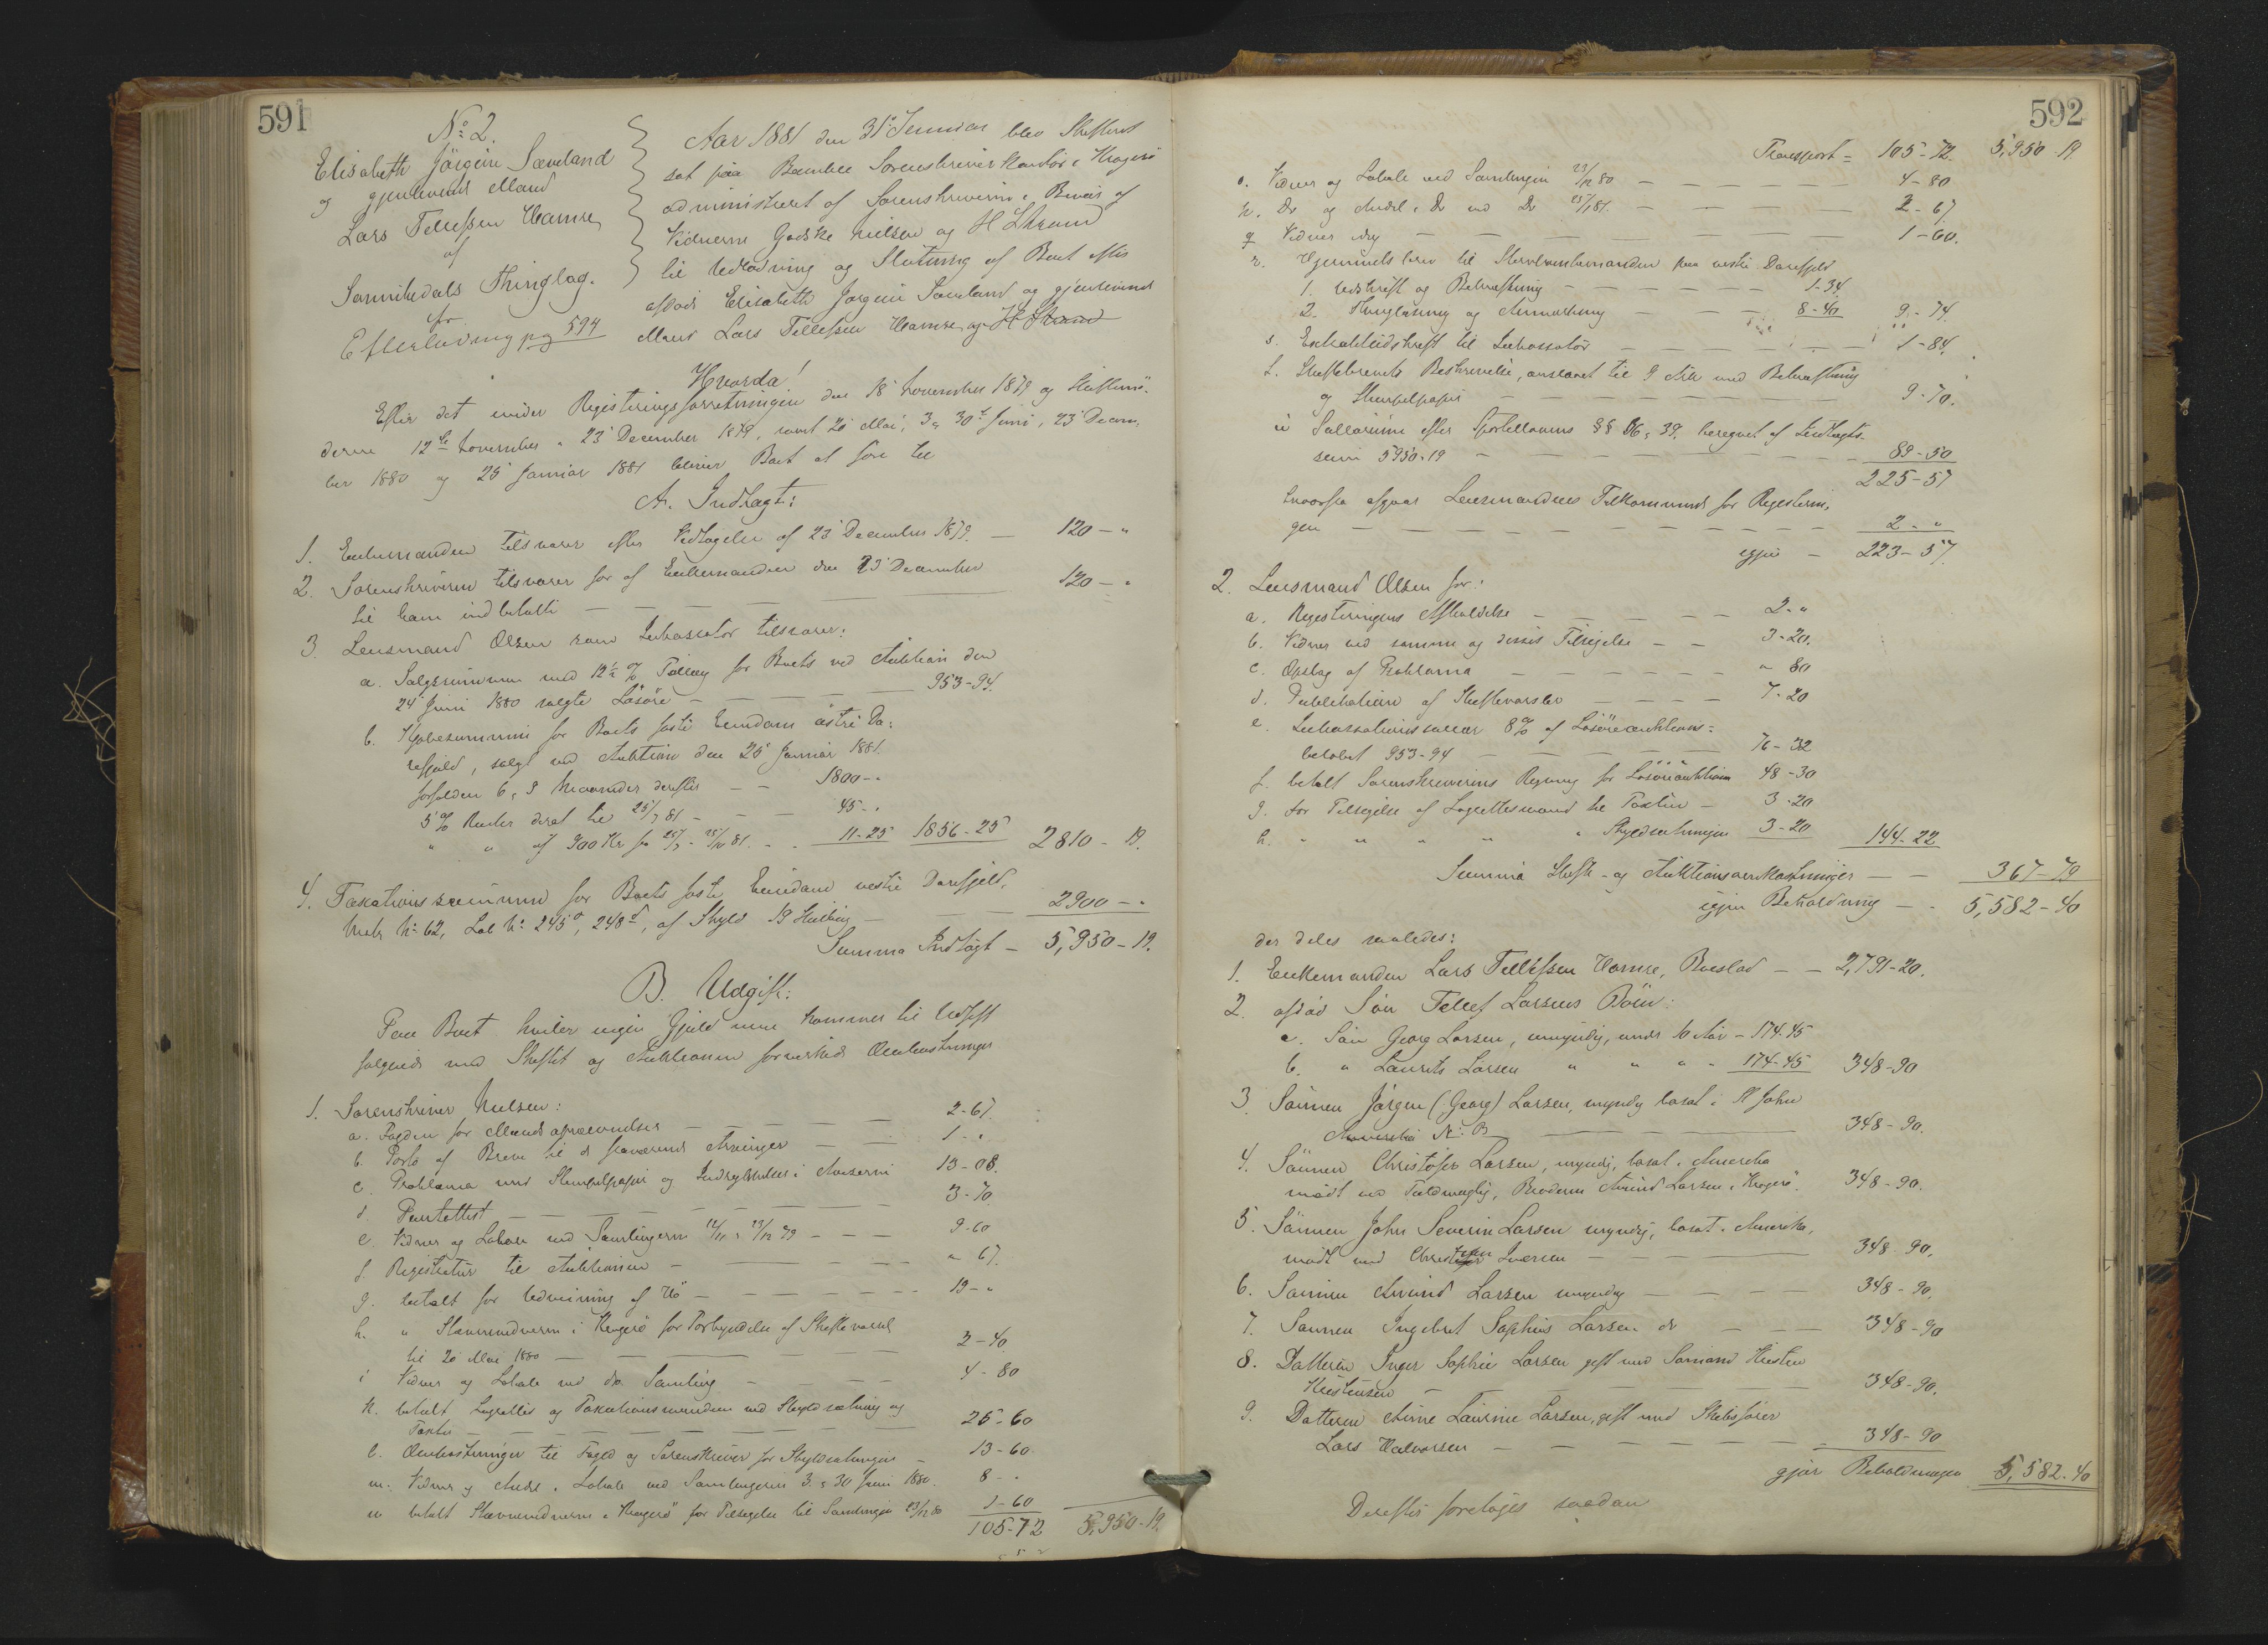 591
No 2.
Elisabeth Jörgine Sannland
og gjenlevende Mand
Lars Tellefsen Hamre
af
Sannikedals Thinglag.
Efterlodning pg 594
Aar 1881 den 31te Januar blev Skifteret
sat paa Bamble Sorenskriverkontor i Kragerö
administreret af Sorenskriveren i Bivær af
Vidnerne Godske Nielsen og H Strand
til Udlodning og Slutning af Boet efter
afdöde Elisabeth Jørgine Sannland og gjenlevende
Mand Lars Tellefsen Hamre og H Strand
Hvorda!
Efter det under Registeringsforretningen den 18 November 1879 og Skiftesam-
lingerne 12te November & 23 December 1879, samt 20 Mai, 3 & 30te Juni, 23 Decem-
ber 1880 og 25 Januar 1881 bliver Boet at före til
A. Indtægt:
1. Enkemanden tilsvarer efter Vedtagelse af 23 December 1879. — 120 – "
2. Sorenskriveren tilsvarer for af Enkemanden den 23 December
til ham indbetalte — 120 – "
3. Lensmand Olsen som Inkassator tilsvarer:
a. Salgssummen med 12½ % Tillæg for Boets ved Auktion den
24 Juni 1880 solgte Lösöre — 953-94.
b. Kjøbesummen for Boets faste Eiendom östre Da-
refjeld, solgt ved Auktion den 25 Januar 1881.
forfalden 6 & 9 Maaneder derefter — 1800 – "
5 % Renter deraf til 25/7 81 — 45 – "
" " af 900 Kr fra 25/7 - 25/10 81. — 11-25 1856-25 2810 – 19.
4. Taxationssummen for Boets faste Eiendom vestre Darefjeld,
Matr No 62, Løb No 245a, 248d, af Skyld 19 Skilling — 2900 – "
Summa Indtægt — 5,950 – 19.
B. Udgift:
Paa Boet hviler ingen Gjæld men kommer til Udgift
følgende med Skiftet og Auktionen forvoldede Omkostninger
1. Sorenskriver Nielsen:
a. Fogden for Mands opnævnelse — 2-67.
b. Porto af Breve til de fraværende Arvinger — 1 – "
c. Proklama med Stempelpapir og Indrykkelse i Aviserne 13-08.
d. Pantattest — 3-70
e. Vidner og Lokale ved Samlingerne 12/11 & 23/12 79 — 9-60
f. Registratur til Auktionen — " 67.
g. betalt for Udveining af Hö — 19 – "
h. " Stævnevidnerne i Kragerö for Forkyndelse af Skiftevarsel
til 20 Mai 1880 — 2-40
i Vidner og Lokale ved do Samling — 4-80
k. betalt Lagrettes og Taxationsmændene ved Skyldsætning og
Taxten — 25-60
l. Omkostninger til Foged og Sorenskriver for Skyldsætningen — 13-60
m. Vidner og Andel i Lokale ved Samlingerne 3 & 30 Juni 1880. 8 – "
n betalt Stævnevidnerne i Kragerö for Tilsigelse til Samlingen 23/12 80 1-60
105-72 5,950-19.
592
Transport = 105-72. 5,950-19.
o. Vidner og Lokale ved Samlingen 23/12 80 — 4-80
p. Do og Andel i Do ved Do 25/1 81. — 2-67.
q Vidner idag — 1-60.
r. Hjemmelsbrev til Stervboenkemanden paa vestre Darefjeld
1. Udskrift og Bekræftning — 1-34
2. Thinglæsning og Anmærkning — 8-40 9-74.
s. Extraktudskrift til Inkassator — 1-84.
t. Skiftebrevets Beskrivelse, anslaaet til 9 Ark med Bekræftning
og Stempelpapir — 9-70.
u Sallarium efter Sportellovens §§ 86 & 39, beregnet af Indtægts-
sum 5950-19 — 89-50
225-57
hvorfra afgaar Lensmandens Tilkommende for Registerin-
gen — 2 – "
igjen — 223-57.
2. Lensmand Olsen for:
a. Registeringens Afholdelse — 2 – "
b. Vidner ved samme og dennes Tilsigelse — 3-20.
c. Opslag af Proklama — " 80
d. Publikation af Skiftevarsler — 7-20
e. Inkassationssallær 8% af Lösöreauktions-
belöbet 953-94 — 76-32
f. betalt Sorenskriverens Regning for Lösöreauktion 48-30
g. for Tilsigelse af Lagrettesmænd til Taxten — 3-20
h. " " " " Skyldsætningen 3-20 144-22
Summa Skifte- og Auktionsomkostninger — 367-79
igjen Beholdning — 5,582-40
der deles saaledes:
1. Enkemanden Lars Tellefsen Hamre, Boeslod — 2,791-20.
2. afdöd Sön Tellef Larsens Börn:
a. Sön Georg Larsen, umyndig, under 16 Aar — 174.45
b. " Laurits Larsen " " " 174-45 348-90
3. Sönnen Jörgen (Georg) Larsen, myndig bosat i St John
Amerika N: B — 348-90.
4. Sönnen Christofer Larsen, myndig, bosat i Amerika
mödt ved Fuldmægtig, Broderen Amund Larsen i Kragerö. 348-90.
5. Sönnen John Severin Larsen myndig, bosat i Amerika,
mödt ved Christen Iversen — 348-90.
6. Sönnen Amund Larsen myndig — 348-90.
7. Sönnen Ingebret Sophus Larsen do — 348-90
8. Datteren Inger Sophie Larsen gift med Sömand Kristen
Kristensen — 348-90.
9. Datteren Anne Laurine Larsen, gift med Skibsförer
Lars Halvorsen — 348-90
gjör Beholdningen 5,582.40
Derefter foretages saadan